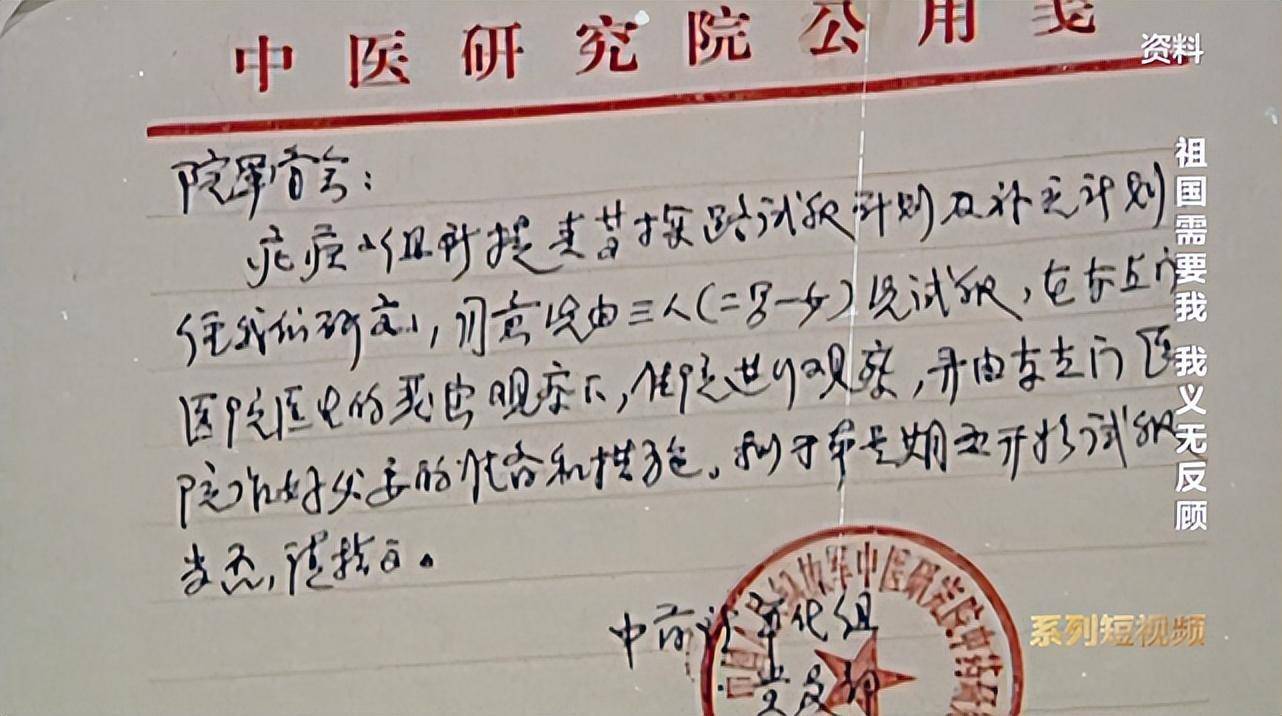 中医研究院公用笺
资料
院军管会：
疟疾小组所提青蒿探路试服计划及补充计划
经我们研究，同意先由三人(二男一女)先试服，在东直门
医院医生的严密观察下，住院进行观察，并由东直门医
院作好必要的准备和措施。拟于本星期五开始试服
当否，请指示。
中药
党支部
祖国需要我 我义无反顾
系列短视频
中医研究院中药